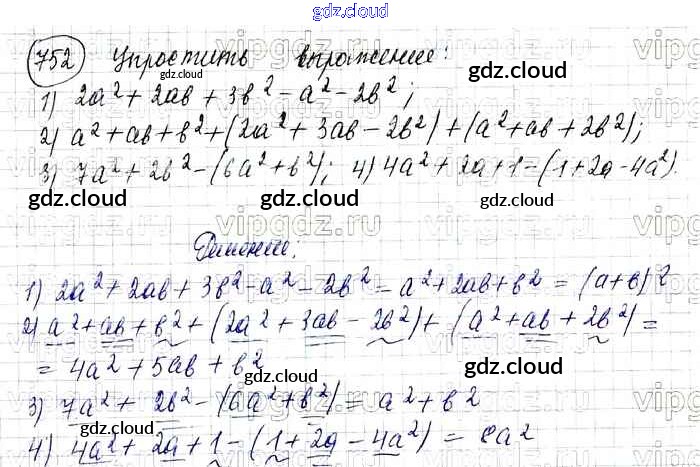 gdz.cloud
752 Упростить выражение:
gdz.cloud gdz.cloud
1) 2a² + 2ab + 3b² - a² - 2b²;
2) a² + ab + b² + (2a² + 3ab - 2b²) + (a² + ab + 2b²);
3) 7a² + 2b² - (6a² + b²); 4) 4a² + 2a + 1 - (1 + 2a - 4a²).
gdz.cloud gdz.cloud gdz.cloud
vipgdz.ru
Решение:
gdz.cloud gdz.cloud
1) 2a² + 2ab + 3b² - a² - 2b² = a² + 2ab + b² = (a+b)²
2) a² + ab + b² + (2a² + 3ab - 2b²) + (a² + ab + 2b²) =
= 4a² + 5ab + b²
gdz.cloud gdz.cloud
3) 7a² + 2b² - (6a² + b²) = a² + b²
gdz.cloud gdz.cloud
4) 4a² + 2a + 1 - (1 + 2a - 4a²) = 8a²